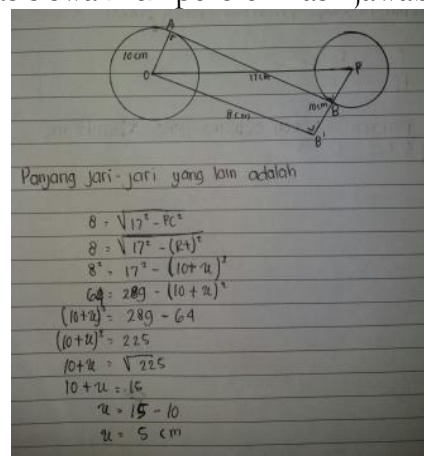 A
10 cm
O
P
17cm
10cm
B
8 cm
B'
Panjang jari-jari yang lain adalah
8 = √17² - PC²
8 = √17² - (R+)²
8² = 17² - (10+x)²
64 = 289 - (10+x)²
(10+x)² = 289 - 64
(10+x)² = 225
10+x = √225
10+x = 15
x = 15 - 10
x = 5 cm